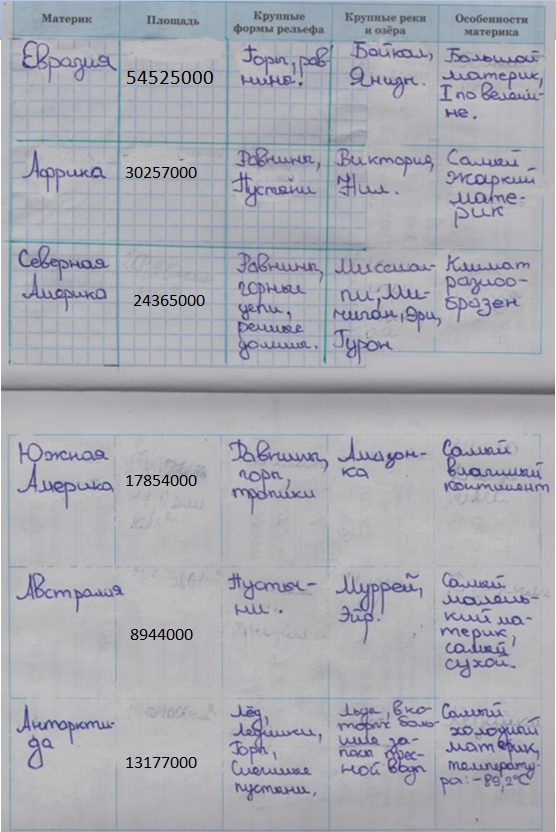 Материк
Площадь
Крупные
формы рельефа
Крупные реки
и озёра
Особенности
материка
Евразия
54525000
Горы, рав-
нины.
Байкал,
Большой
материк,
I по величи-
не.
Африка
30257000
Равнины,
Пустыни
Виктория,
Нил.
Самый
жаркий
мате-
рик
Северная
Америка
24365000
Равнины,
горные
цепи,
речные
долины.
Миссиси-
пи, Ми-
чиган, Эри,
Гурон
Климат
разно-
образен
Южная
Америка
17854000
Равнины,
горы,
тропики
Амазон-
ка
Самый
влажный
континент
Австралия
8944000
Пусты-
ни.
Муррей,
Эйр.
Самый
малень-
кий ма-
терик,
самый
сухой.
Антаркти-
да
13177000
Лёд,
Ледники,
Горы,
Снежные
пустыни.
Льды, в ко-
торых боль-
шие за-
пасы прес-
ной воды
Самый
холодный
материк,
температу-
ра: -89,2°C